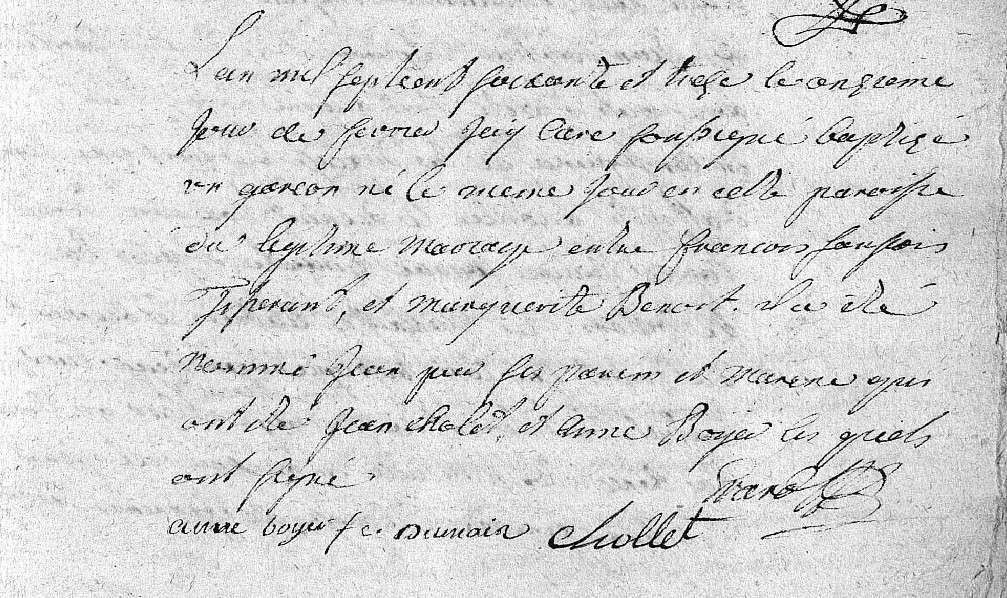 L'an mil sept cent soixante et treze le onzieme
jour de fevrier Je Curé soussigné baptizé
un garcon né le meme jour en cette paroisse
du legitime mariage entre francois
et marguerite Benoit. il a été
nommé Jean par ses parein et mareine qui
ont été Jean cholet, et anne Boyer les quels
ont signé
anne boyer f c. Dunoir chollet